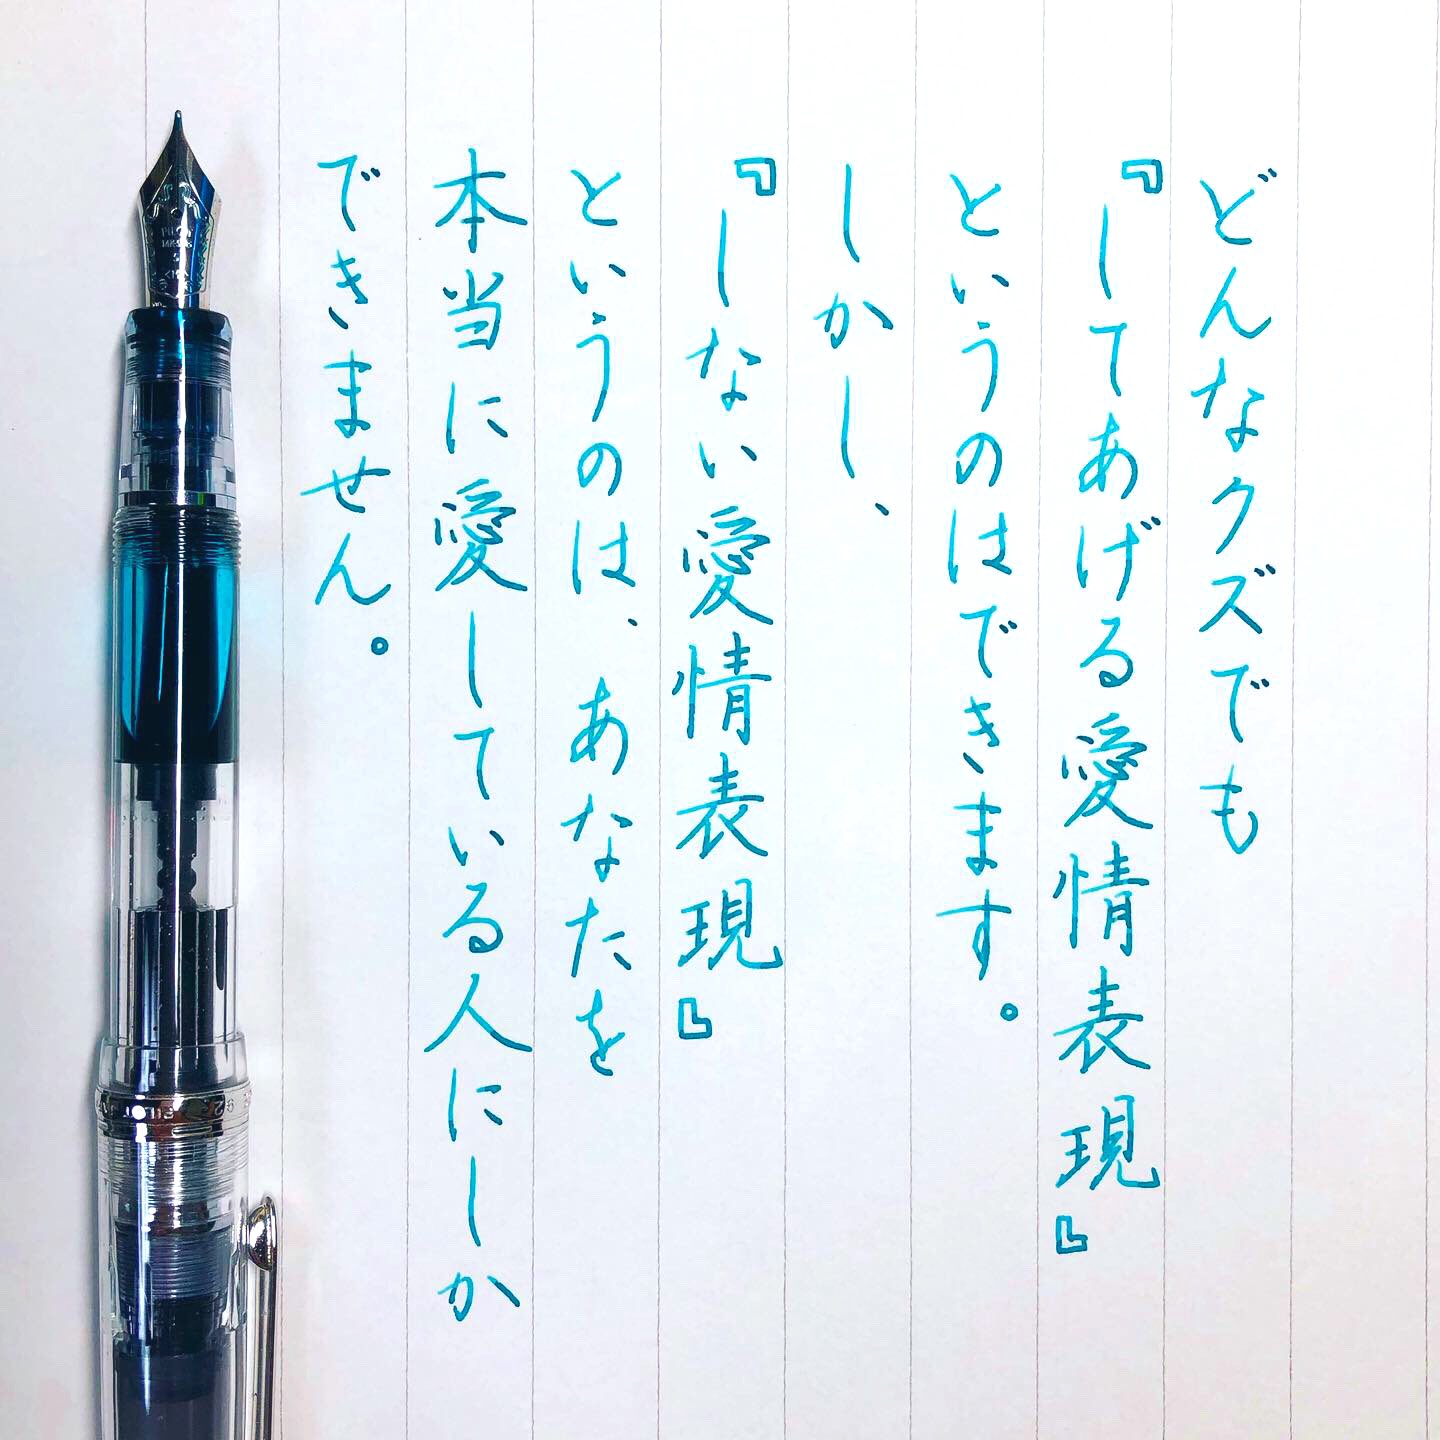 どんなクズでも
『してあげる愛情表現』
というのはできます。
しかし、
『しない愛情表現』
というのは、あなたを
本当に愛している人にしか
できません。